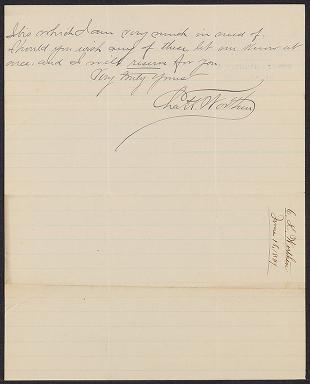 which I am very much in need of.
Should you wish any of these let me know at
once, and I will reserve for you.
Very Truly Yours
Chas. K. Worthen
C. K. Worthen
June 15, 1891